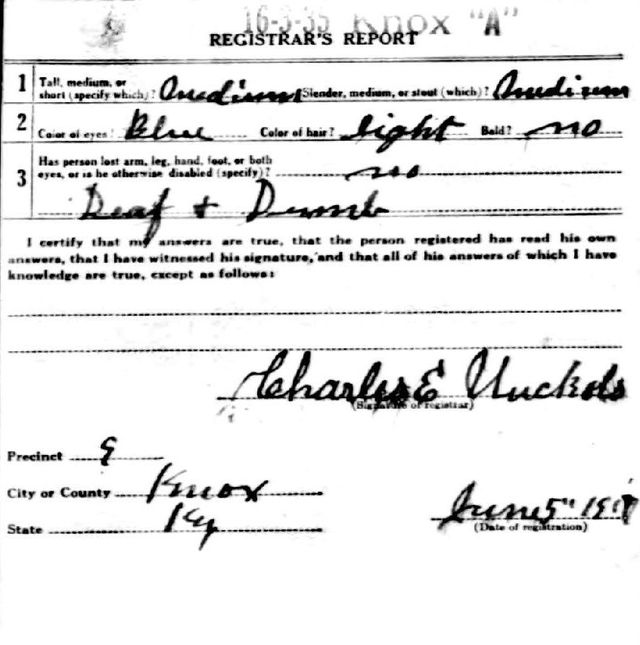 16-3-35 Knox "A"
REGISTRAR'S REPORT
1 Tall, medium, or short (specify which)? Medium Slender, medium, or stout (which)? Medium
2 Color of eyes? Blue Color of hair? light Bald? no
3 Has person lost arm, leg, hand, foot, or both
eyes, or is he otherwise disabled (specify)? no
Deaf + Dumb
I certify that my answers are true, that the person registered has read his own
answers, that I have witnessed his signature, and that all of his answers of which I have
knowledge are true, except as follows:
Charles E Nuckols
(Signature of registrar)
Precinct 9
City or County Knox
State Ky
June 5" 1917
(Date of registration)